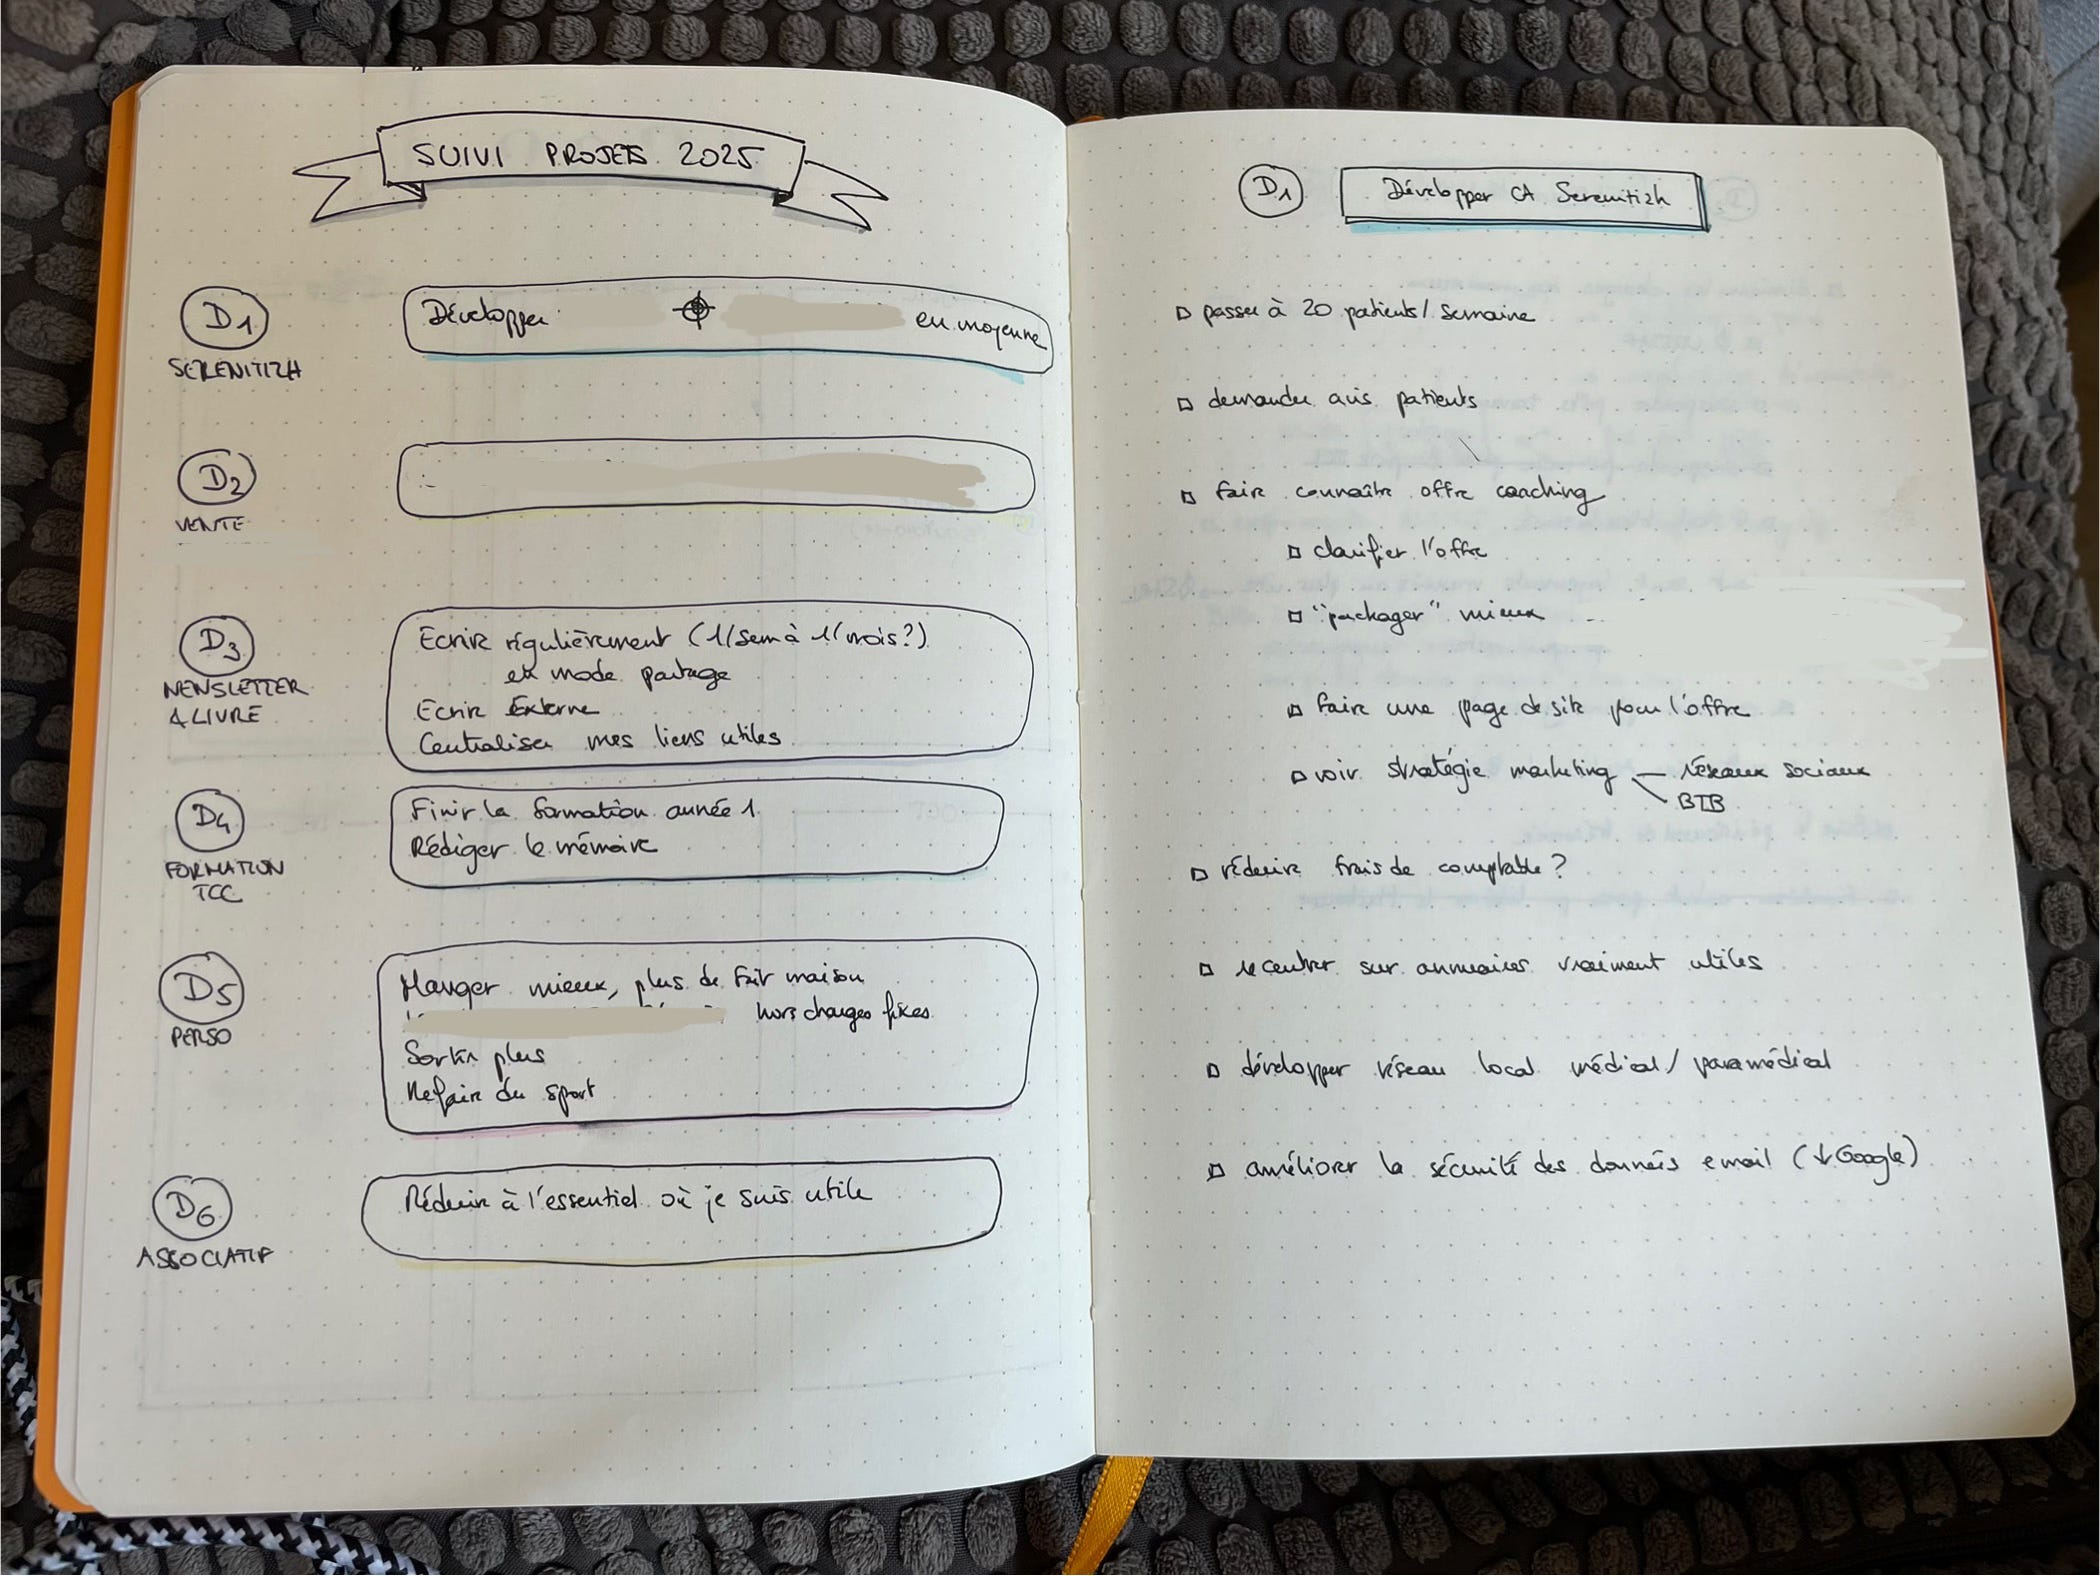 SUIVI PROJETS 2025
D1
SERENITIZH
Développer
en moyenne
D2
VENTE
D3
NEWSLETTER
& LIVRE
Ecrire régulièrement (1/sem à 1/mois?)
en mode partage
Ecrire Externe
Centraliser mes liens utiles
D4
FORMATION
TCC
Finir la formation année 1
Rédiger le mémoire
D5
PERSO
Manger mieux, plus de fait maison
hors charges fixes
Sortir plus
Refaire du sport
D6
ASSOCIATIF
Réduire à l'essentiel où je suis utile
D1
Développer CA Serenitizh
passer à 20 patients/semaine
demander avis patients
faire connaître offre coaching
clarifier l'offre
"packager" mieux
faire une page de site pour l'offre
voir stratégie marketing réseaux sociaux
BTB
réduire frais de comptable ?
recentrer sur annuaires vraiment utiles
développer réseau local médical/paramédical
améliorer la sécurité des données email (↓ Google)